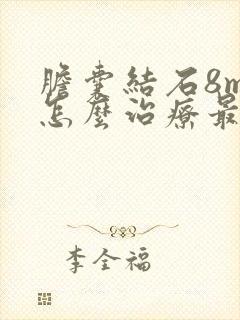 膽囊結石8m
怎麼治療最
李全福